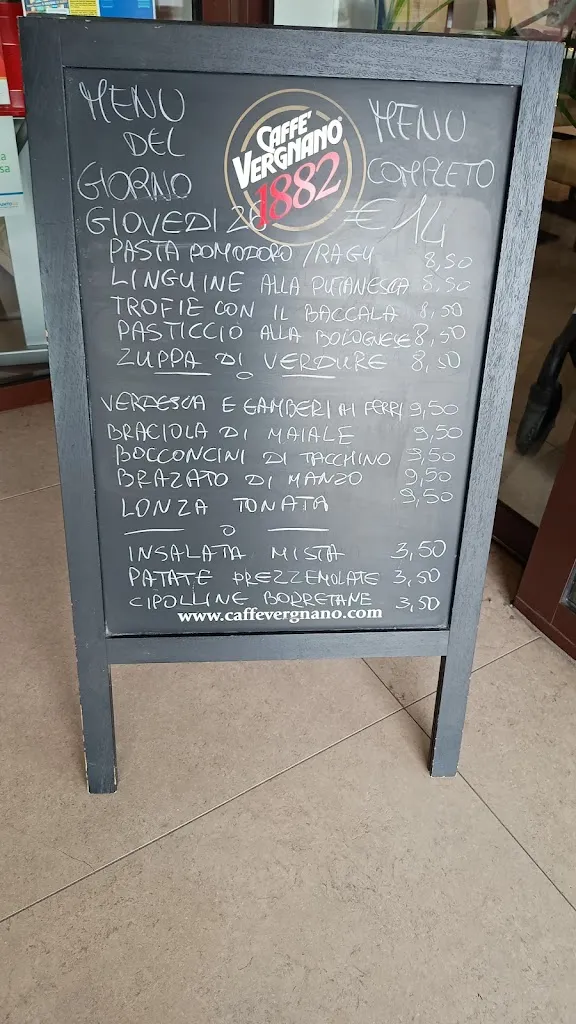 MENU
DEL
GIORNO
CAFFÈ
VERGNANO
1882
MENU
COMPLETO
€ 14
GIOVEDI
PASTA POMODORO/RAGU 8,50
LINGUINE ALLA PUTANESCA 8,50
TROFIE CON IL BACCALA 8,50
PASTICCIO ALLA BOLOGNESE 8,50
ZUPPA DI VERDURE 8,50
VERDESCA E GAMBERI AI FERRI 9,50
BRACIOLA DI MAIALE 9,50
BOCCONCINI DI TACCHINO 9,50
BRAZATO DI MANZO 9,50
LONZA TONATA 9,50
INSALATA MISTA 3,50
PATATE PREZZEMOLATE 3,50
CIPOLLINE BORRETANE 3,50
www.caffevergnano.com